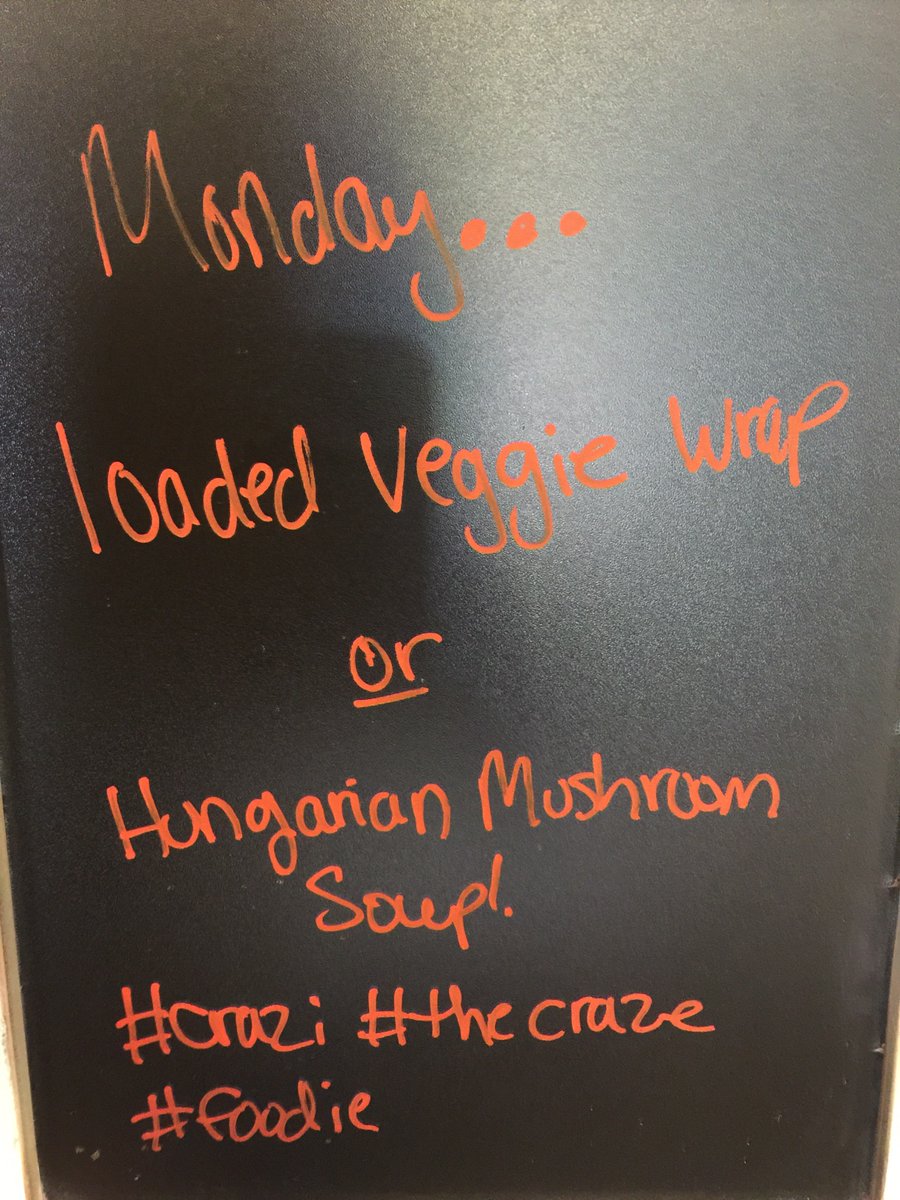 Monday...
loaded veggie wrap
or
Hungarian Mushroom
Soup!
#crazi #thecraze
#foodie